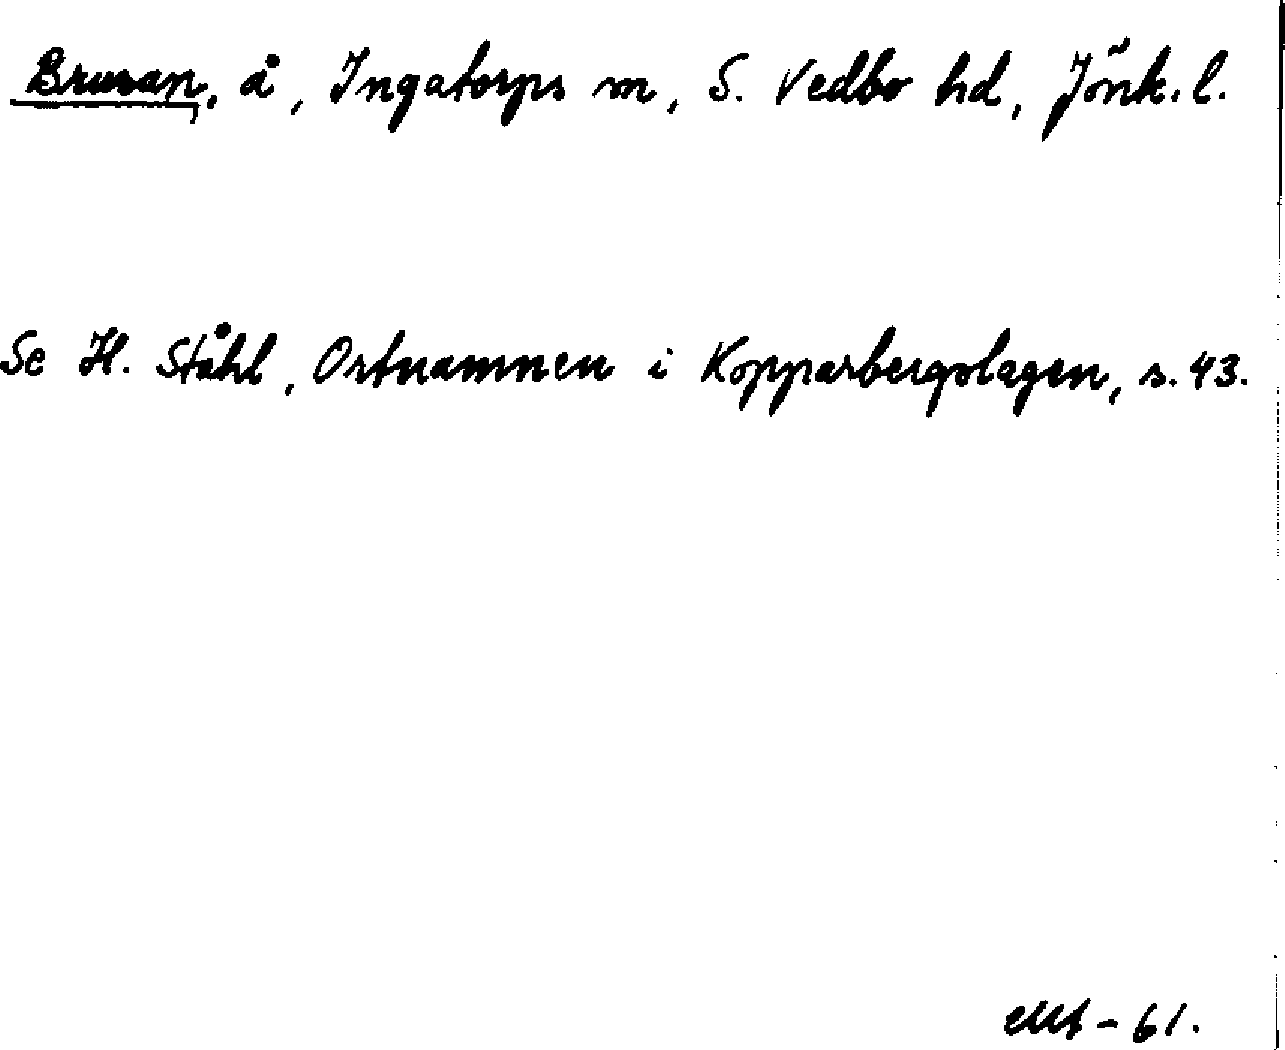 Brusan, å, Ingatorps sn, S. Vedbo hd, Jönk. l.
Se H. Ståhl, Ortnamnen i Kopparbergslagen, s. 43.
- 61.